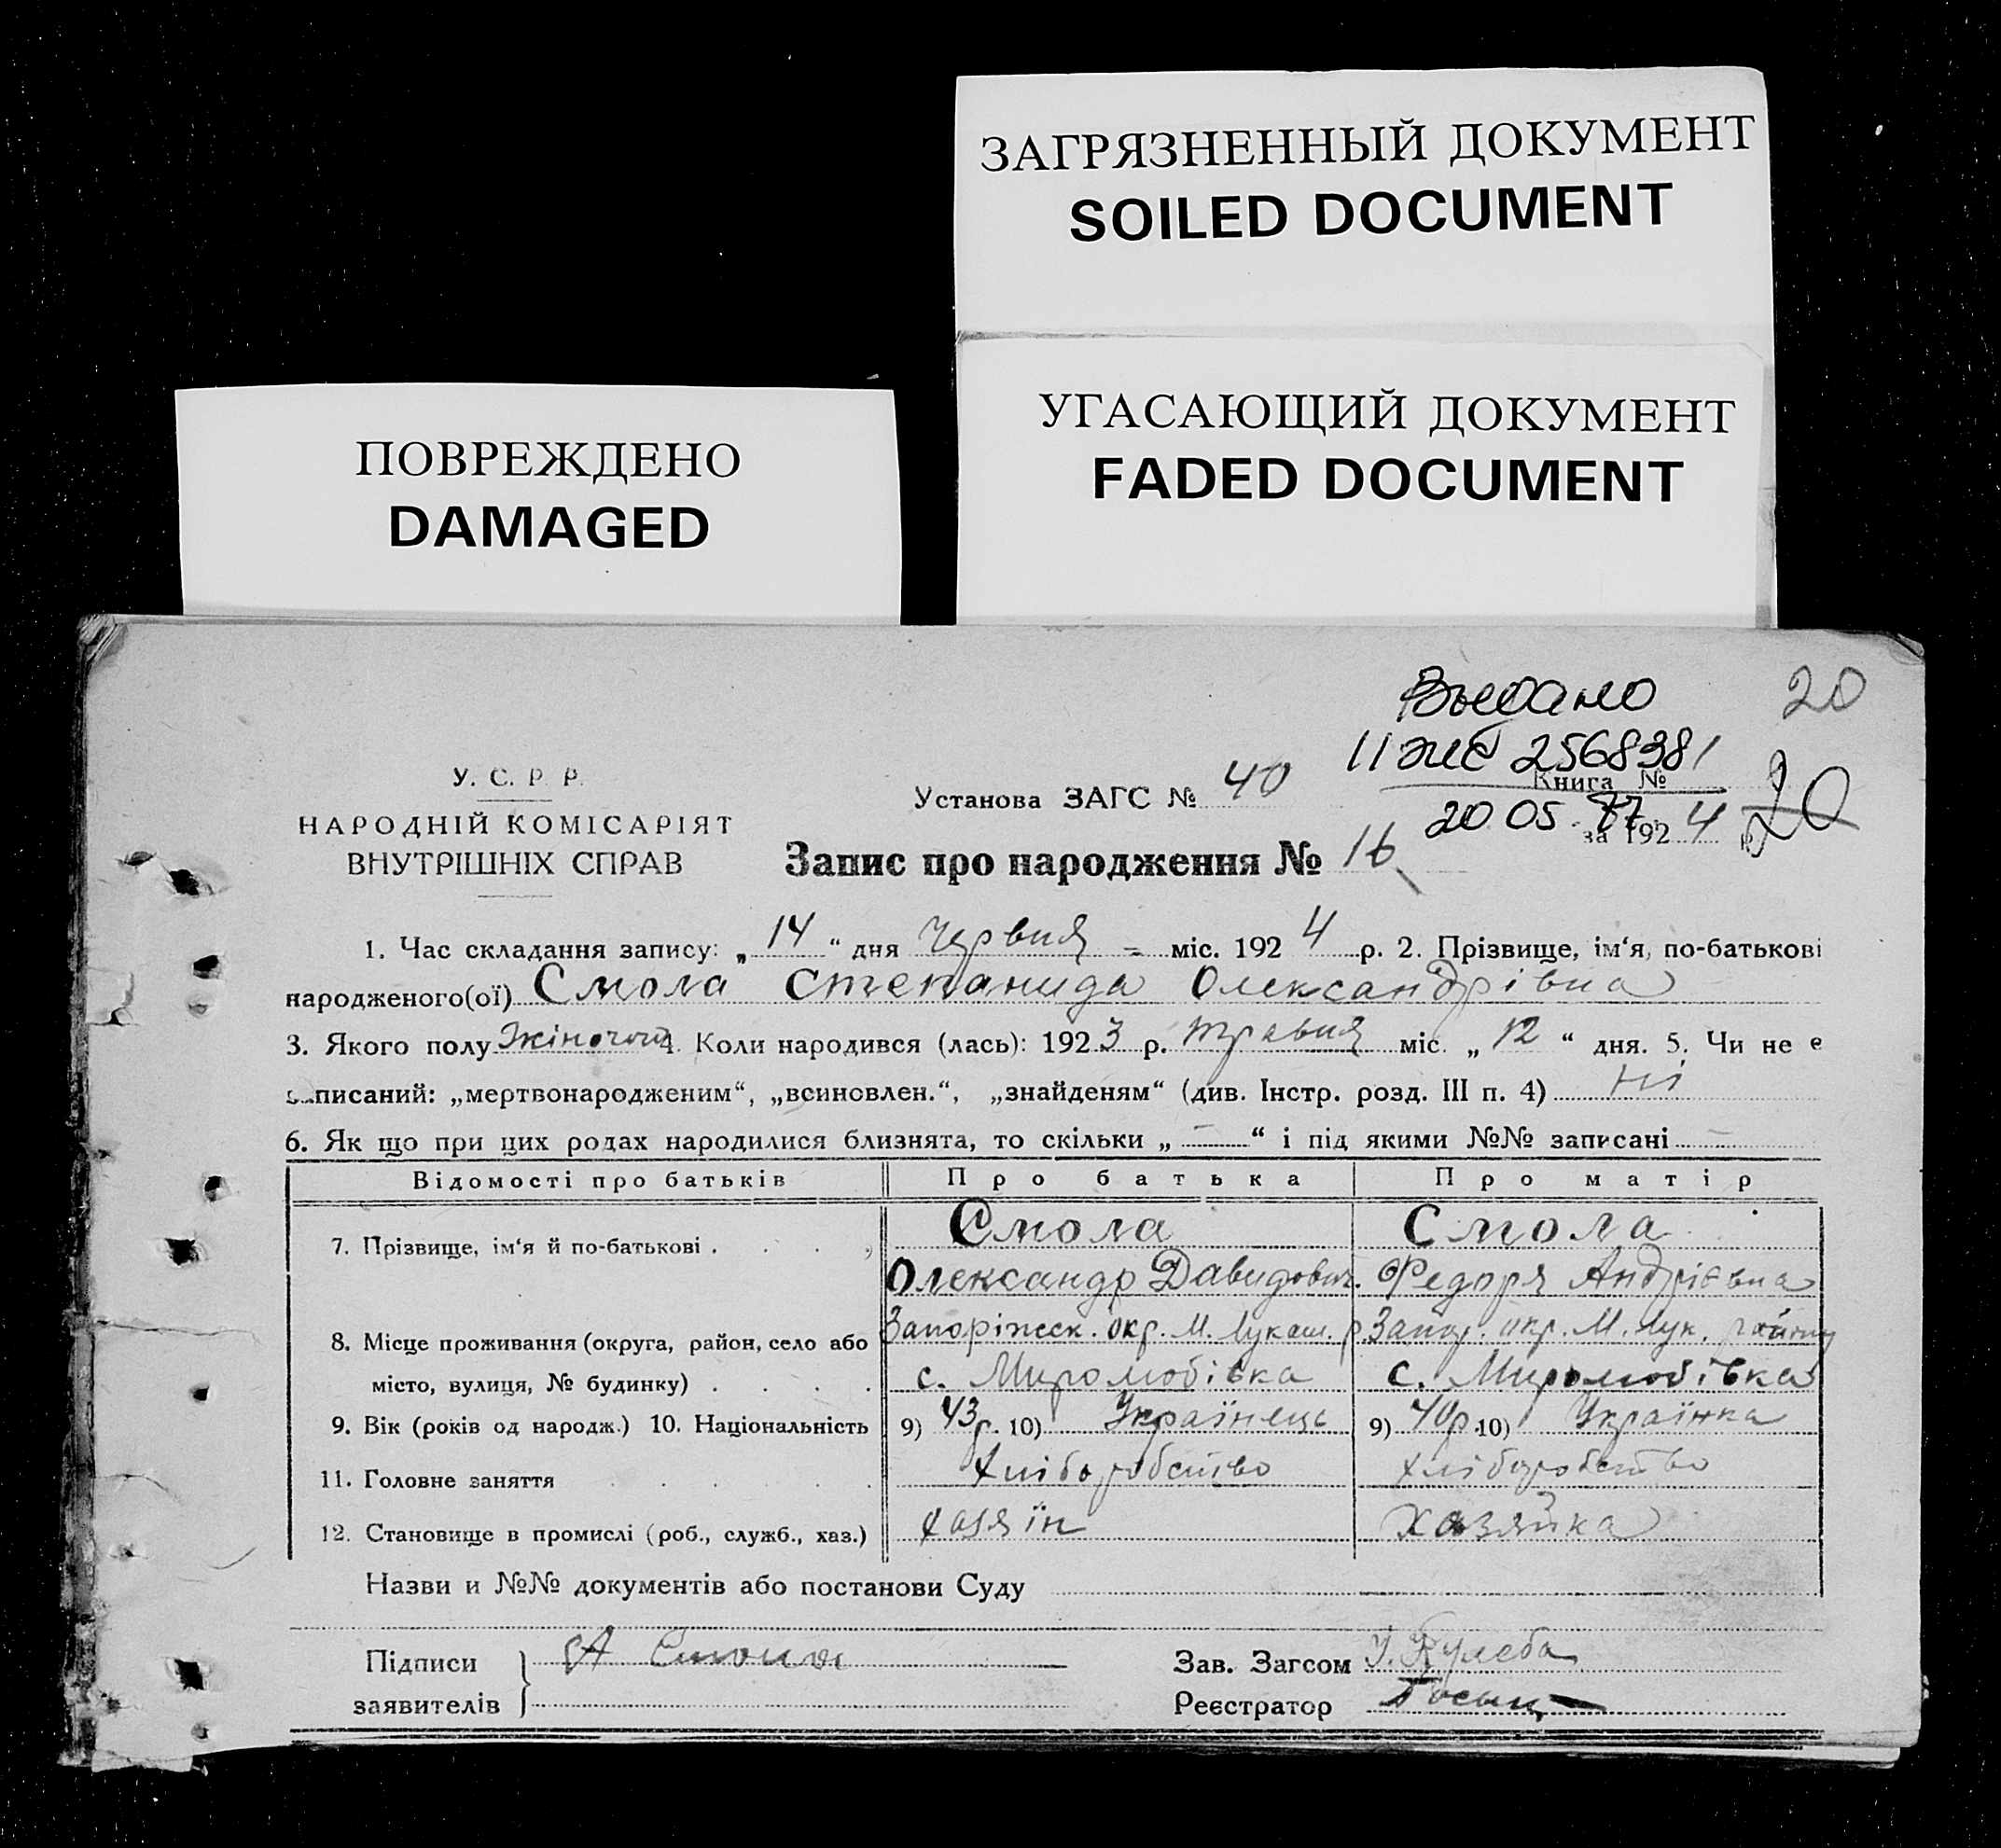 ЗАГРЯЗНЕННЫЙ ДОКУМЕНТ
SOILED DOCUMENT
УГАСАЮЩИЙ ДОКУМЕНТ
FADED DOCUMENT
ПОВРЕЖДЕНО
DAMAGED
20
20
У. С. Р. Р.
НАРОДНІЙ КОМІСАРІЯТ
ВНУТРІШНІХ СПРАВ
Выдано
II жс 2568381
20 05 77
Установа ЗАГС № 40
Книга №
за 192 4 р.
Запис про народження № 16
1. Час складання запису: „ 14 “ дня червня = міс. 192 4 р. 2. Прізвище, ім‘я, по-батькові
народженого(ої) Смола Степанида Олександрівна
3. Якого полу жіночого 4. Коли народився (лась): 192 3 р. травня міс. „ 12 “ дня. 5. Чи не е
записаний: „мертвонародженим“, „всиновлен.“, „знайденям“ (див. Інстр. розд. III п. 4) ні
6. Як що при цих родах народилися близнята, то скільки „ — “ і під якими №№ записані —
Відомості про батьків Про батька Про матір
7. Прізвище, ім‘я й по-батькові . . . . Смола Смола
Олександр Давидович. Федоря Андрієвна
8. Місце проживання (округа, район, село або Запоріжск. окр. М. Лукаш. р. Запор. окр. М. Лук. району
місто, вулиця, № будинку) . . . . с. Миролюбівка с. Миролюбівка
9. Вік (років од народж.) 10. Національність 9) 43 р. 10) Українець 9) 40 р. 10) Українка
11. Головне заняття . . . . . . хліборобство хліборобство
12. Становище в промислі (роб., служб., хаз.) хазяїн хазяйка
Назви и №№ документів або постанови Суду
Підписи А Смола Зав. Загсом Кулеба
заявителів Реєстратор